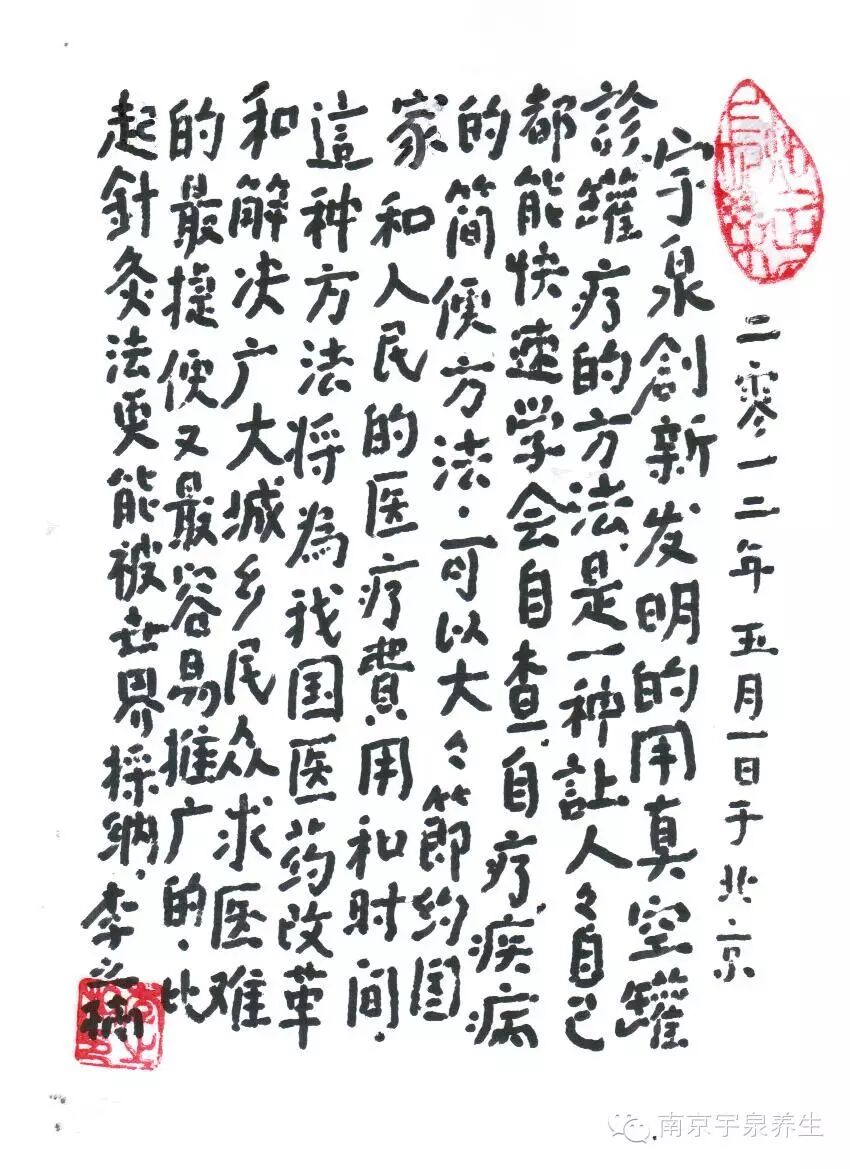 二零一二年五月一日于北京
宇泉創新发明的用真空罐
診罐疗的方法,是一种让人々自己
都能快速学会自查,自疗疾病
的简便方法.可以大々節约国
家和人民的医疗費用和时间.
這种方法将為我国医药改革
和解决广大城乡民众求医难
的最捷便又最容易推广的.比
起針灸法更能被世界採纳.李之楠
南京宇泉养生